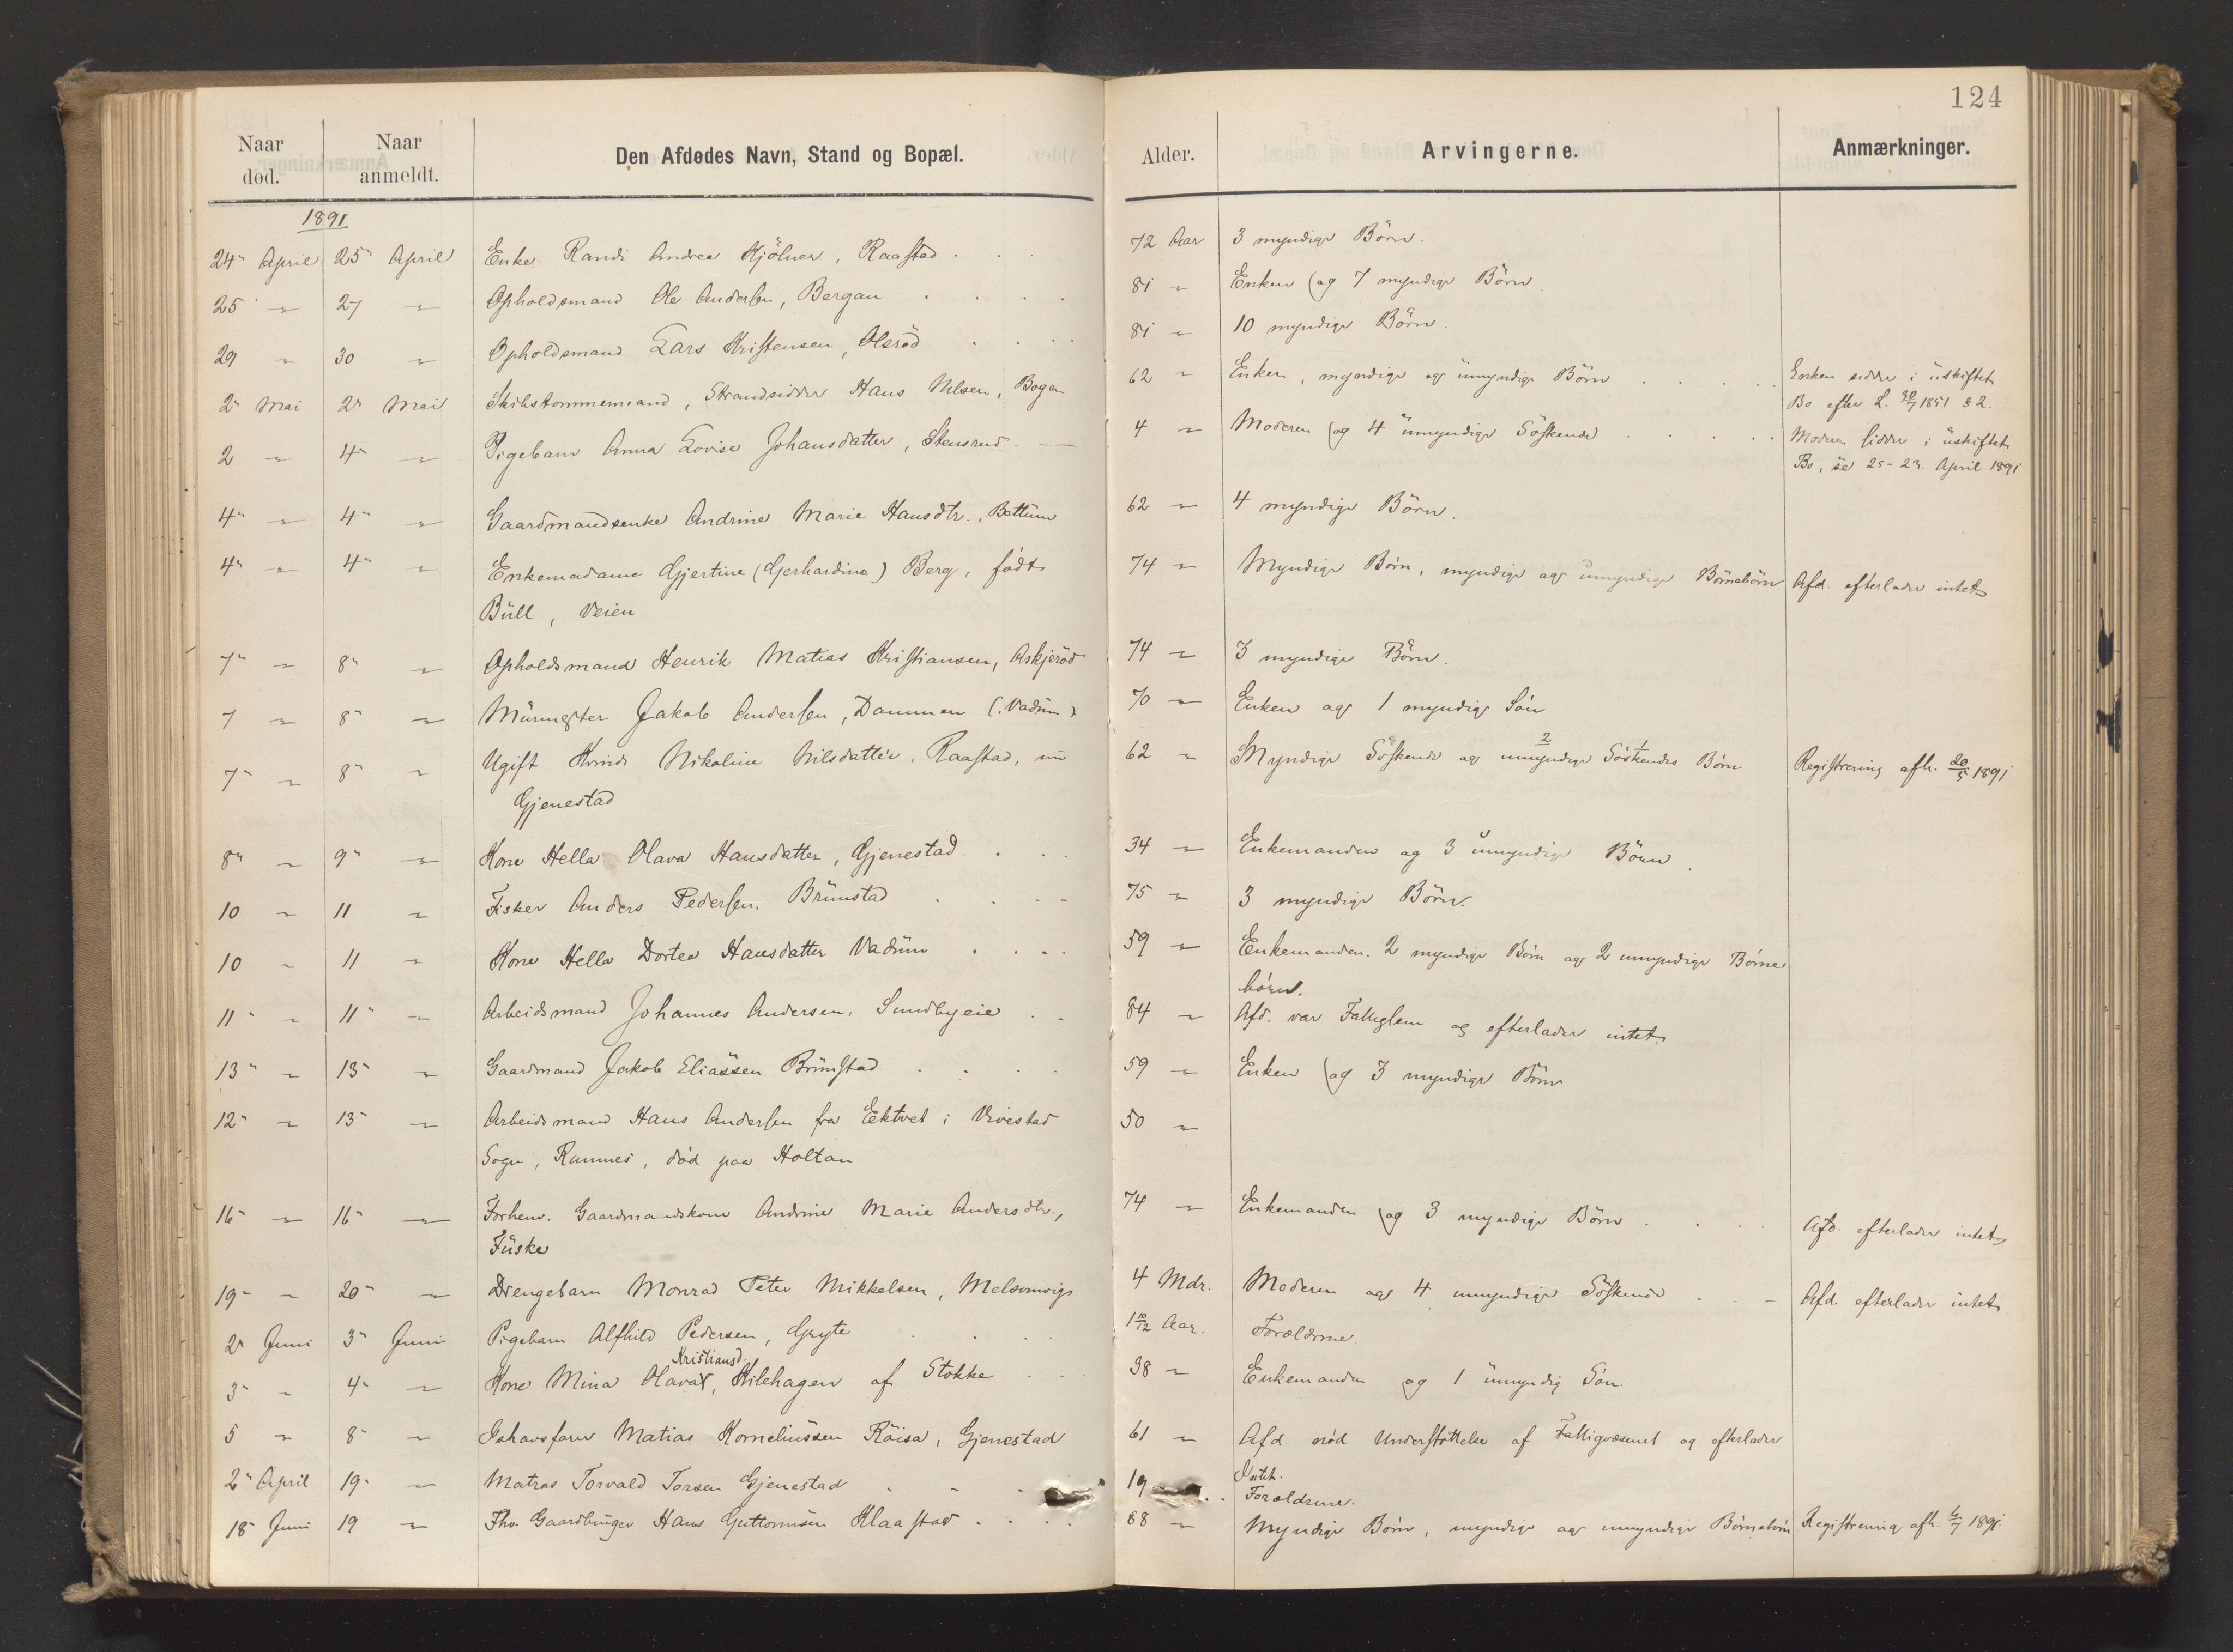 124
Naar død. Naar anmeldt. Den Afdødes Navn, Stand og Bopæl. Alder. Arvingerne. Anmærkninger.
1891
24n April 25n April Enke Randi Andrea Kjölner, Raastad . . . 72 Aar 3 myndige Börn.
25 " 27 " Opholdsmand Ole Andersen, Bergan . . . . 81 " Enken og 7 myndige Börn
29 " 30 " Opholdsmand Lars Kristensen, Olsröd . . . . 81 " 10 myndige Börn.
2n Mai 2n Mai Skibstømmermand, Strandsidder Hans Nilsen, Bogen 62 " Enken, myndige og umyndige Börn . . . . . Enken sidder i uskiftet
Bo efter L. 30/7 1851 § 2.
2 " 4n " Pigebarn Anna Lovise Johansdatter, Stensrud 4 " Moderen og 4 umyndige Söskende . . . . . Moderen sidder i uskiftet
Bo, se 25-23. April 1891
4n " 4n " Gaardmandsenke Andrine Marie Hansdtr., Bettum 62 " 4 myndige Börn.
4n " 4n " Enkemadame Gjertine (Gerhardine) Berg, födt 74 " Myndige Börn, myndige og umyndige Börnebörn Afd. efterlader intet
Bull, Veien
7n " 8n " Opholdsmand Henrik Matias Kristiansen, Askjeröd 74 " 3 myndige Börn.
7 " 8n " Murmester Jakob Andersen, Dammen (Vadum) 70 " Enken og 1 myndig Sön
7n " 8n " Ugift Kvinde Nikoline Nilsdatter, Raastad, nu 62 " Myndige Söskende og 2 umyndige Söskendes Börn Registrering afh. 20/5 1891
Gjenestad
8n " 9n " Kone Hella Olava Hansdatter, Gjenestad . . . 34 " Enkemanden og 3 umyndige Börn.
10 " 11 " Fisker Anders Pedersen, Brunstad . . . . 75 " 3 myndige Börn.
10 " 11 " Kone Hella Dortea Hansdatter Vadum . . . . 59 " Enkemanden, 2 myndige Börn og 2 umyndige Börne
börn.
11n " 11n " Arbeidsmand Johannes Andersen, Sundbyeie . . 84 " Afd. var Fattiglem og efterlader intet.
13n " 13n " Gaardmand Jakob Eliassen Brunstad . . . . 59 " Enken og 3 myndige Börn
12n " 13n " Arbeidsmand Hans Andersen fra Ektvet i Vivestad 50 "
Sogn, Ramnes, död paa Holtan
16n " 16n " Forhenv. Gaardmandskone Andrine Marie Andersdtr., 74 " Enkemanden og 3 myndige Börn . . . . Afd. efterlader intet
Fuske
19n " 20n " Drengebarn Monrad Peter Mikkelsen, Melsomvig 4 Mdr. Moderen og 4 umyndige Söskende . . . Afd. efterlader intet
2n Juni 3n Juni Pigebarn Alfhild Pedersen, Gryte . . . . 1 10/12 Aar. Forældrene.
Kristiansd.
3n " 4n " Kone Mina Olava, Kilehagen af Stokke . . . 38 " Enkemanden og 1 umyndig Sön.
5 " 8n " Ishavsfarer Matias Korneliussen Röisa, Gjenestad 61 " Afd. nöd Understöttelse af Fattigvæsenet og efterlader
Intet.
2n April 19n " Matros Torvald Torsen Gjenestad . . . 19 Forældrene.
18n Juni 19 " Fhv. Gaardbruger Hans Guttormsen Klaastad . . . . 88 " Myndige Börn, myndige og umyndige Börnebörn Registrering afh. 6/7 1891